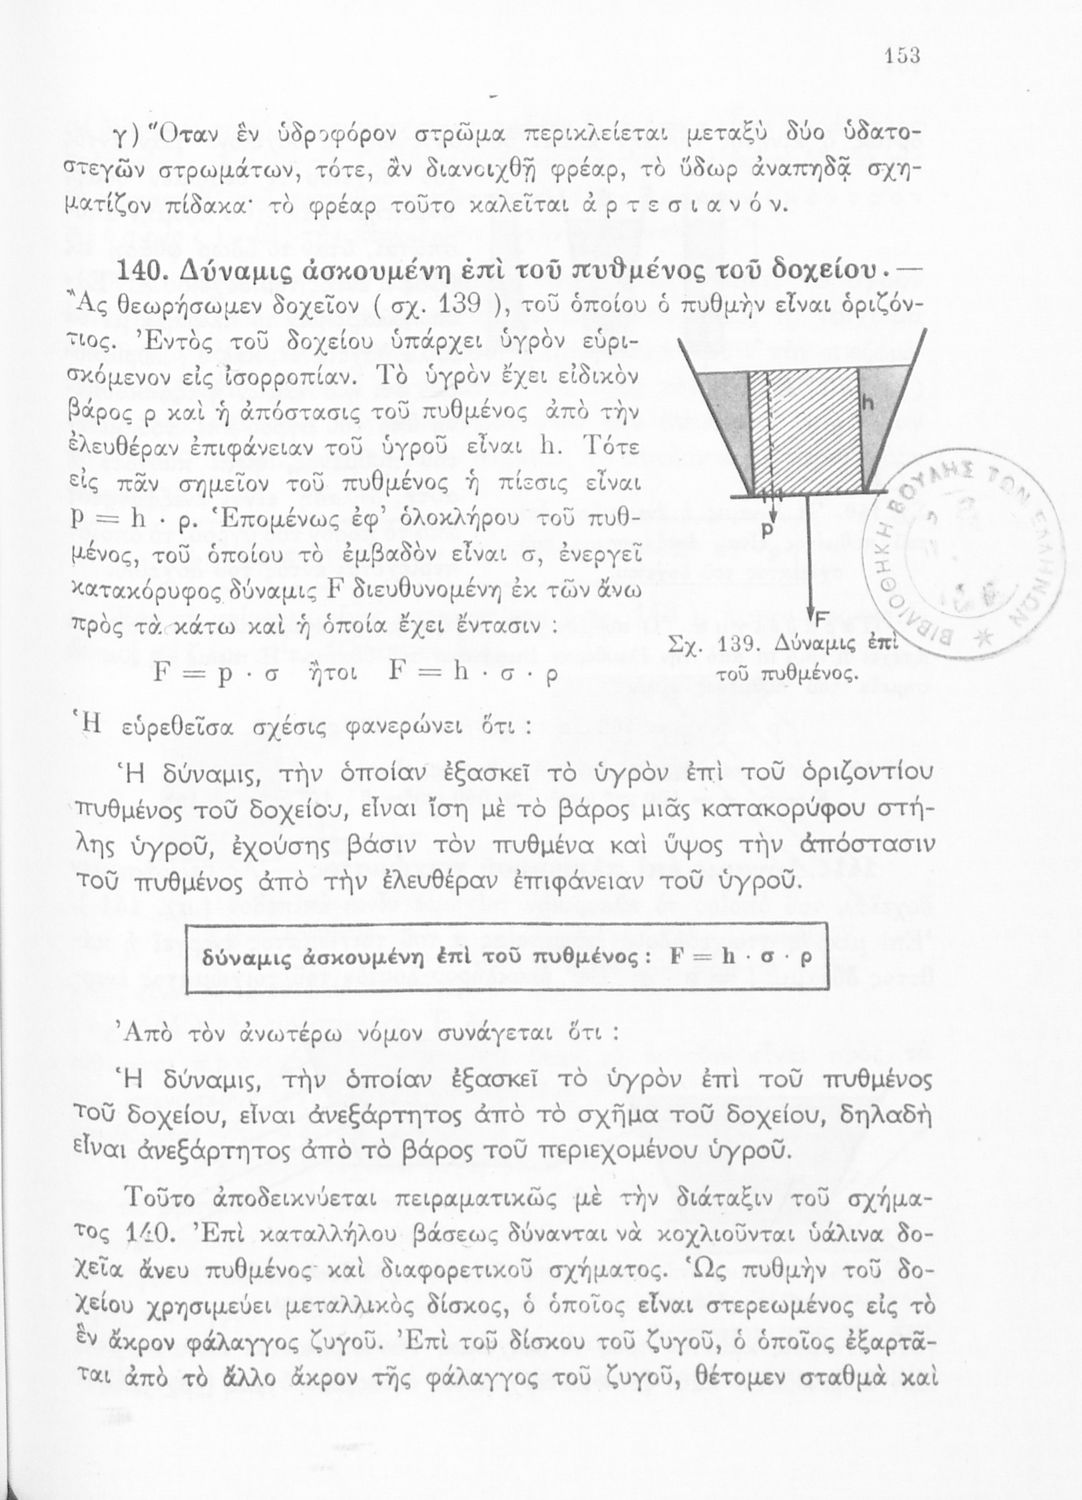 153
γ) Ὅταν ἓν ὑδροφόρον στρῶμα περικλείεται μεταξὺ δύο ὑδατο-
στεγῶν στρωμάτων, τότε, ἂν διανοιχθῇ φρέαρ, τὸ ὕδωρ ἀναπηδᾷ σχη-
ματίζον πίδακα· τὸ φρέαρ τοῦτο καλεῖται ἀ ρ τ ε σ ι α ν ό ν.
140. Δύναμις ἀσκουμένη ἐπὶ τοῦ πυθμένος τοῦ δοχείου. —
Ἂς θεωρήσωμεν δοχεῖον ( σχ. 139 ), τοῦ ὁποίου ὁ πυθμὴν εἶναι ὁριζόν-
τιος. Ἐντὸς τοῦ δοχείου ὑπάρχει ὑγρὸν εὑρι-
σκόμενον εἰς ἰσορροπίαν. Τὸ ὑγρὸν ἔχει εἰδικὸν
βάρος ρ καὶ ἡ ἀπόστασις τοῦ πυθμένος ἀπὸ τὴν
ἐλευθέραν ἐπιφάνειαν τοῦ ὑγροῦ εἶναι h. Τότε
εἰς πᾶν σημεῖον τοῦ πυθμένος ἡ πίεσις εἶναι
p = h · ρ. Ἑπομένως ἐφ' ὁλοκλήρου τοῦ πυθ-
μένος, τοῦ ὁποίου τὸ ἐμβαδὸν εἶναι σ, ἐνεργεῖ
κατακόρυφος δύναμις F διευθυνομένη ἐκ τῶν ἄνω
πρὸς τὰ κάτω καὶ ἡ ὁποία ἔχει ἔντασιν :
F = p · σ ἤτοι F = h · σ · ρ
h
p
F
Σχ. 139. Δύναμις ἐπὶ
τοῦ πυθμένος.
ΒΙΒΛΙΟΘΗΚΗ ΒΟΥΛΗΣ ΤΩΝ ΕΛΛΗΝΩΝ
Ἡ εὑρεθεῖσα σχέσις φανερώνει ὅτι :
Ἡ δύναμις, τὴν ὁποίαν ἐξασκεῖ τὸ ὑγρὸν ἐπὶ τοῦ ὁριζοντίου
πυθμένος τοῦ δοχείου, εἶναι ἴση μὲ τὸ βάρος μιᾶς κατακορύφου στή-
λης ὑγροῦ, ἐχούσης βάσιν τὸν πυθμένα καὶ ὕψος τὴν ἀπόστασιν
τοῦ πυθμένος ἀπὸ τὴν ἐλευθέραν ἐπιφάνειαν τοῦ ὑγροῦ.
δύναμις ἀσκουμένη ἐπὶ τοῦ πυθμένος : F = h · σ · ρ
Ἀπὸ τὸν ἀνωτέρω νόμον συνάγεται ὅτι :
Ἡ δύναμις, τὴν ὁποίαν ἐξασκεῖ τὸ ὑγρὸν ἐπὶ τοῦ πυθμένος
τοῦ δοχείου, εἶναι ἀνεξάρτητος ἀπὸ τὸ σχῆμα τοῦ δοχείου, δηλαδὴ
εἶναι ἀνεξάρτητος ἀπὸ τὸ βάρος τοῦ περιεχομένου ὑγροῦ.
Τοῦτο ἀποδεικνύεται πειραματικῶς μὲ τὴν διάταξιν τοῦ σχήμα-
τος 140. Ἐπὶ καταλλήλου βάσεως δύνανται νὰ κοχλιοῦνται ὑάλινα δο-
χεῖα ἄνευ πυθμένος καὶ διαφορετικοῦ σχήματος. Ὡς πυθμὴν τοῦ δο-
χείου χρησιμεύει μεταλλικὸς δίσκος, ὁ ὁποῖος εἶναι στερεωμένος εἰς τὸ
ἓν ἄκρον φάλαγγος ζυγοῦ. Ἐπὶ τοῦ δίσκου τοῦ ζυγοῦ, ὁ ὁποῖος ἐξαρτᾶ-
ται ἀπὸ τὸ ἄλλο ἄκρον τῆς φάλαγγος τοῦ ζυγοῦ, θέτομεν σταθμὰ καὶ